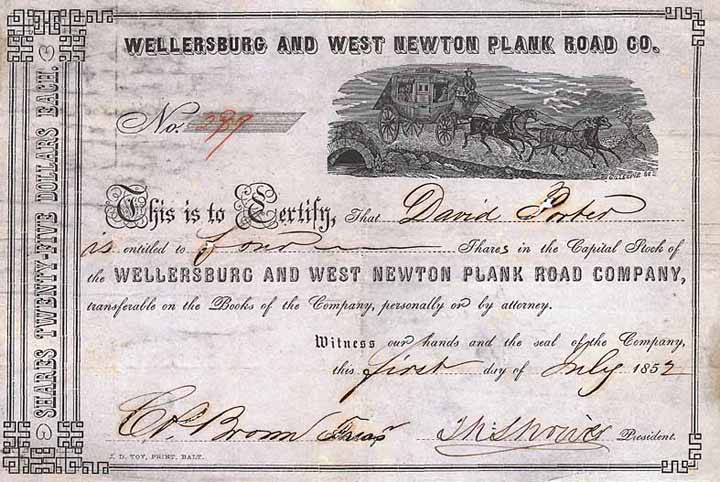 WELLERSBURG AND WEST NEWTON PLANK ROAD CO.
SHARES TWENTY-FIVE DOLLARS EACH.
No. 289
This is to Certify, That David Porter
is entitled to four Shares in the Capital Stock of
the WELLERSBURG AND WEST NEWTON PLANK ROAD COMPANY,
transferable on the Books of the Company, personally or by attorney.
Witness our hands and the seal of the Company,
this first day of July 1852
Brown Treasr President.
J. D. TOY, PRINT. BALT.